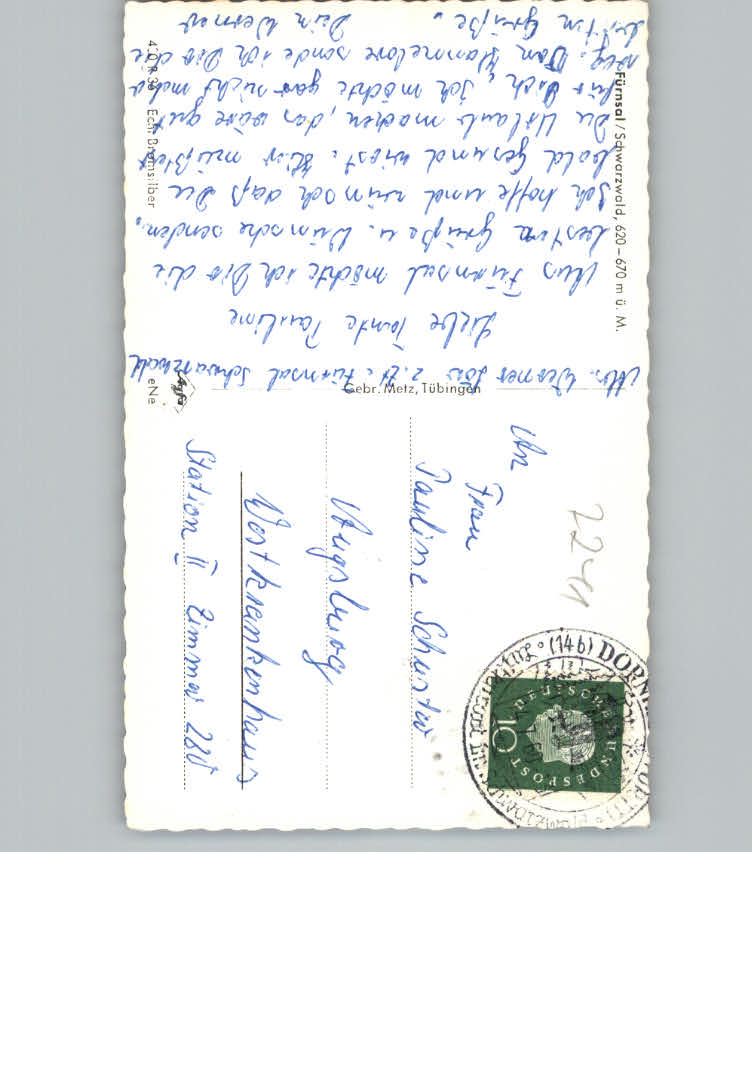 Fürnsal / Schwarzwald, 620–670 m ü. M.
Abs. Werner z. Zt. Fürnsal Schwarzwald
Liebe Tante Pauline
Aus Fürnsal möchte ich Dir die
besten Grüße u. Wünsche senden.
Ich hoffe und wünsch daß Du
bald Gesund wirst. Hier müßtest
Du Urlaub machen, das wäre gut
für Dich, ich möchte gar nicht mehr
weg. Von Hannelore sende ich Dir die
besten Grüße.
Dein Werner
Gebr. Metz, Tübingen
Echt Bromsilber
Agfa
eNe
2241
(14b) DORN
DEUTSCHE BUNDESPOST
10
An
Frau
Pauline Schuster
Augsburg
Westkrankenhaus
Station II Zimmer 280